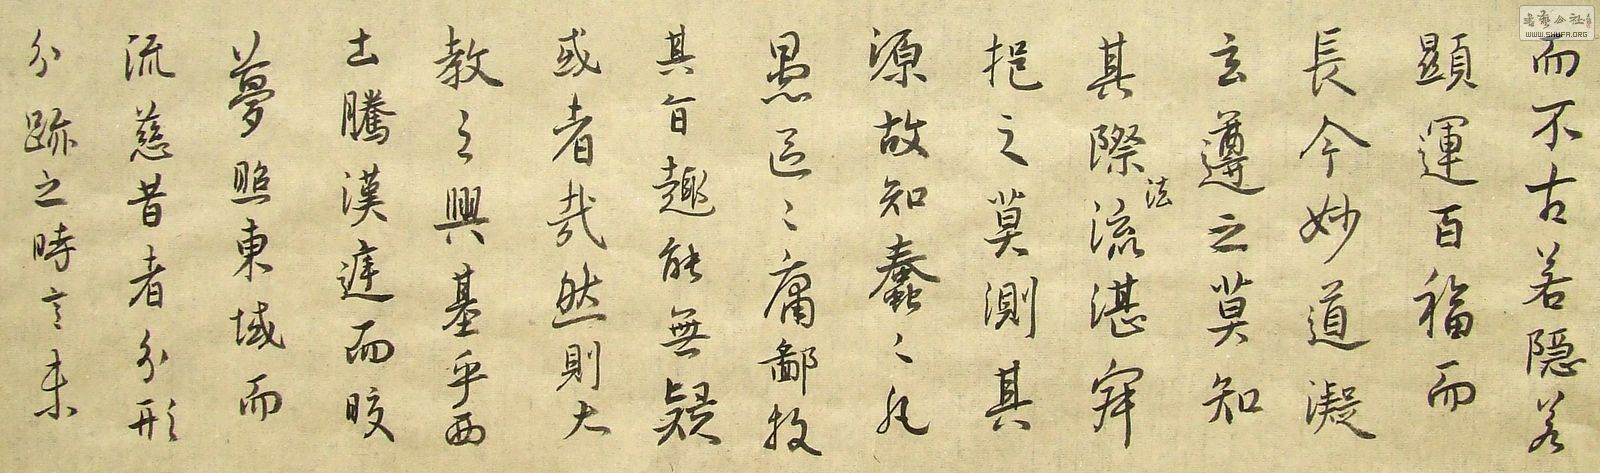 而不古若隱若
顯運百福而
長今妙道凝
玄遵之莫知
其際法流湛寂
挹之莫測其
源故知蠢〻凡
愚區〻庸鄙投
其旨趣能無疑
或者哉然則大
教之興基乎西
土騰漢庭而皎
夢照東域而
流慈昔者分形
分跡之時言未
書藝公社
WWW.SHUFA.ORG